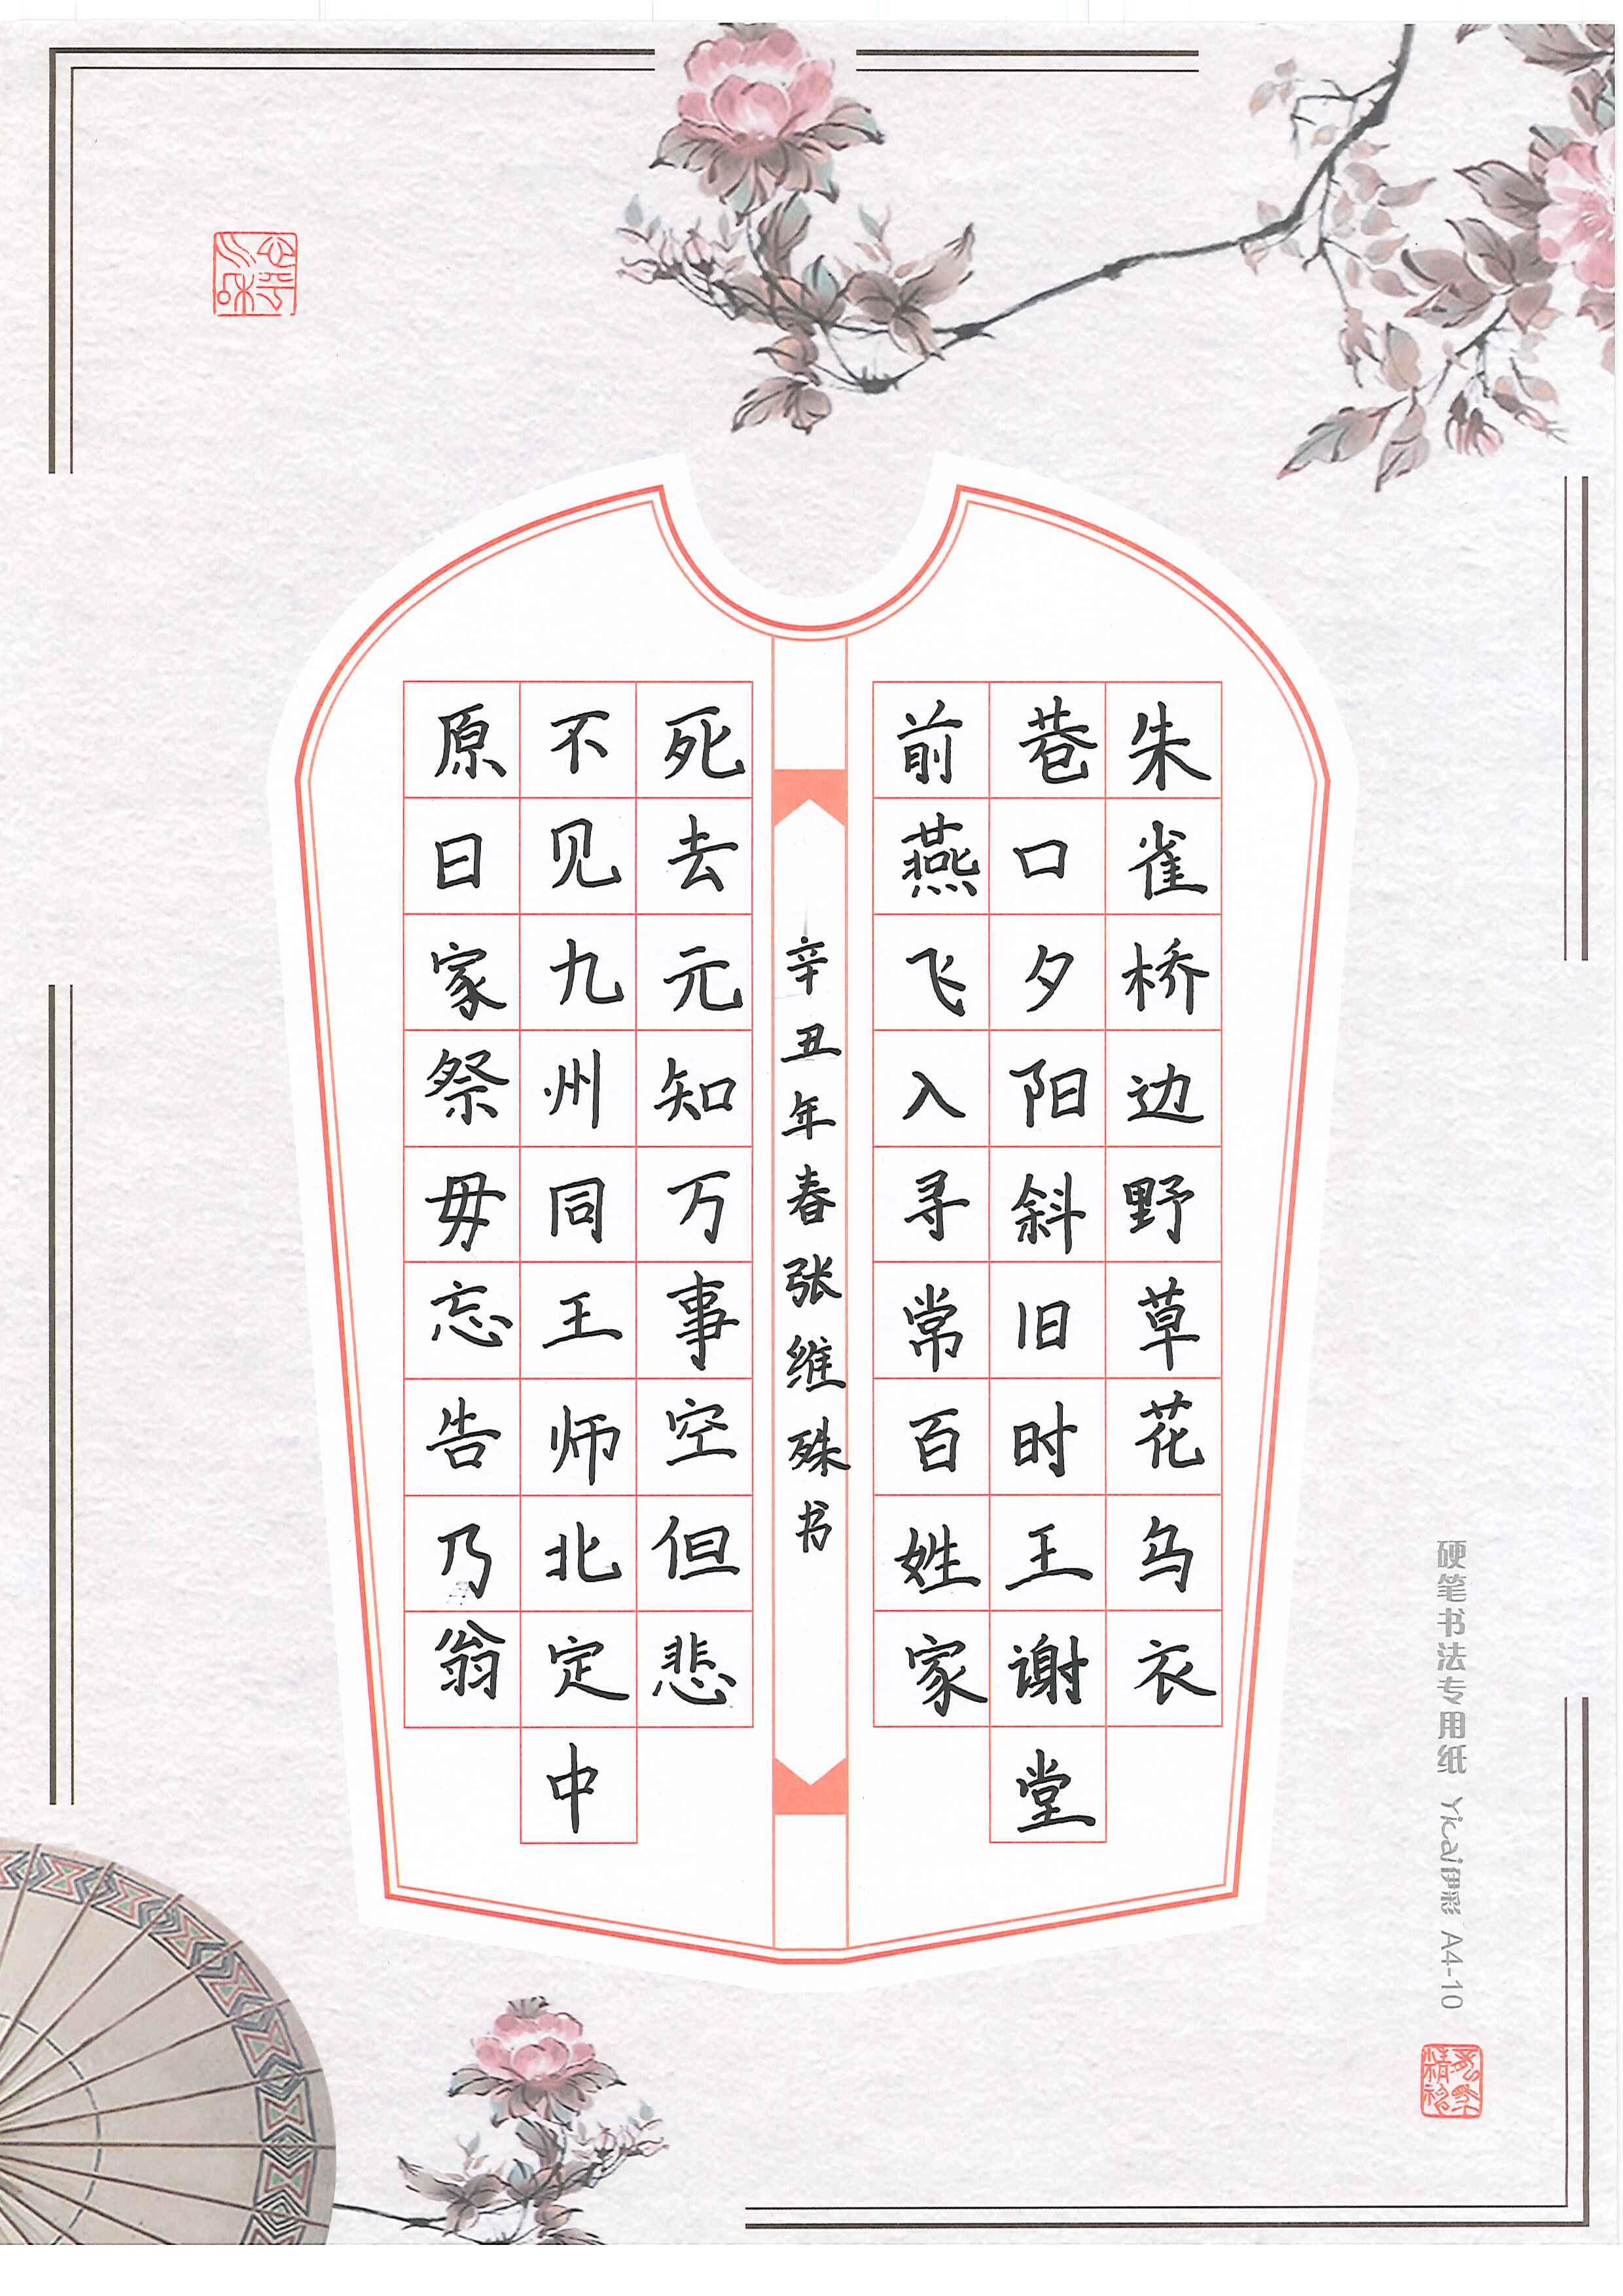 朱雀桥边野草花乌衣
巷口夕阳斜旧时王谢堂
前燕飞入寻常百姓家
死去元知万事空但悲
不见九州同王师北定中
原日家祭毋忘告乃翁
辛丑年春张维殊书
硬笔书法专用纸 Yicai伊彩 A4-10